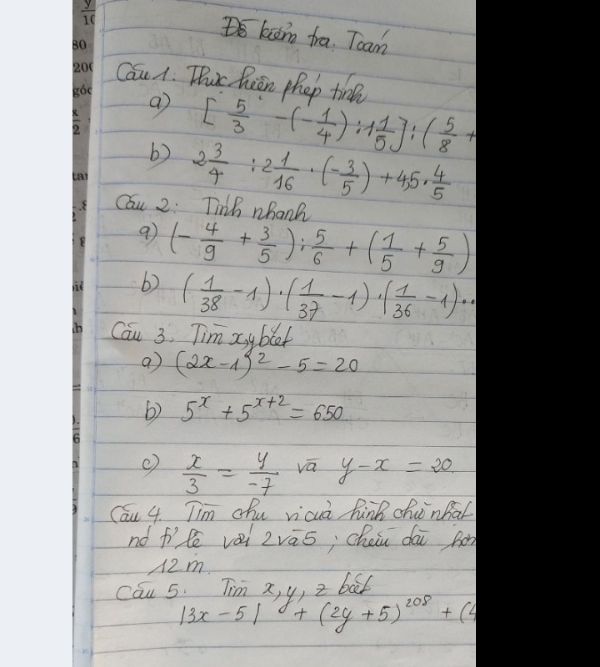 Đề kiểm tra. Toán
Câu 1: Thực hiện phép tính
a) [ 5/3 - (- 1/4) : 1 1/5 ] : ( 5/8 +
b) 2 3/4 : 2 1/16 . (- 3/5) + 4,5 . 4/5
Câu 2: Tính nhanh
a) (- 4/9 + 3/5) : 5/6 + ( 1/5 + 5/9 )
b) ( 1/38 - 1) . ( 1/37 - 1) . ( 1/36 - 1) ...
Câu 3. Tìm x,y biết
a) (2x - 1)² - 5 = 20
b) 5^x + 5^(x+2) = 650
c) x/3 = y/-7 và y - x = 20.
Câu 4. Tìm chu vi của hình chữ nhật
nó tỉ lệ với 2 và 5 ; chiều dài hơn
12 m.
Câu 5. Tìm x, y, z biết
|3x - 5| + (2y + 5)^208 + (4